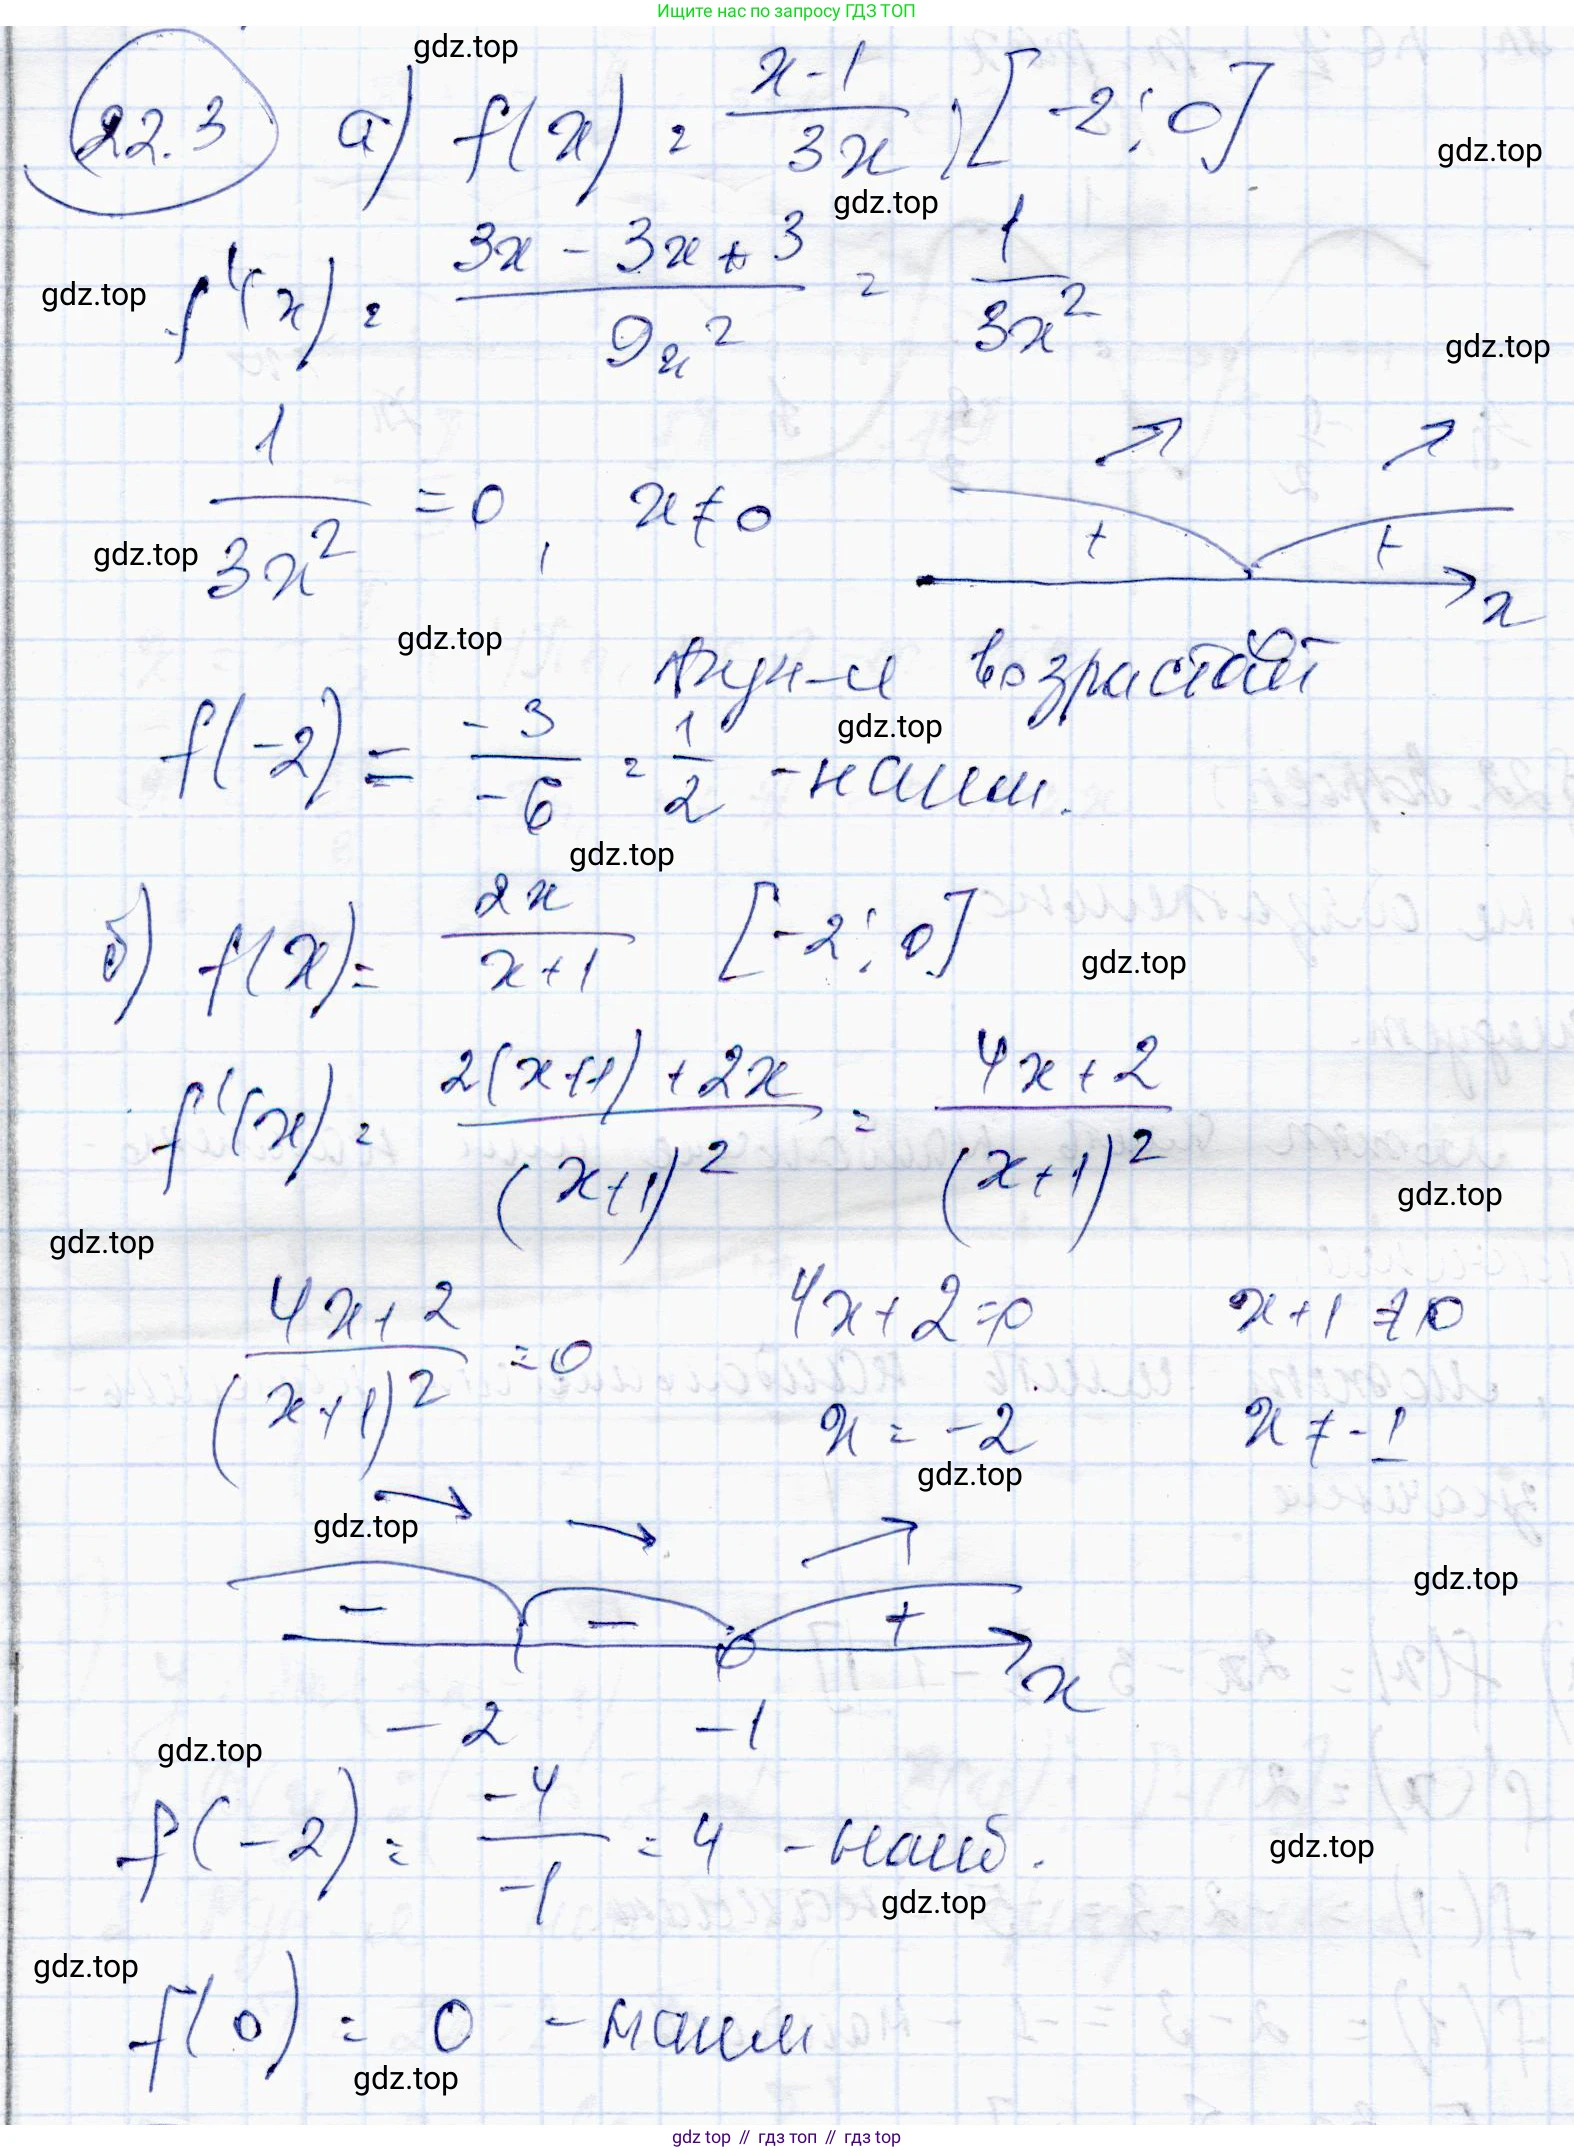 Ищите нас по запросу ГДЗ ТОП
gdz.top
22.3 а) f(x) = (x-1)/(3x) ; [-2; 0]
gdz.top
gdz.top
f'(x) = (3x - 3x + 3)/(9x²) = 1/(3x²)
gdz.top
gdz.top
1/(3x²) = 0, x ≠ 0
+ + x
gdz.top
gdz.top
функ-я возрастает
f(-2) = (-3)/(-6) = 1/2 - наим.
gdz.top
gdz.top
б) f(x) = 2x/(x+1) [-2; 0]
gdz.top
f'(x) = (2(x+1) + 2x)/(x+1)² = (4x+2)/(x+1)²
gdz.top
gdz.top
(4x+2)/(x+1)² = 0 4x+2=0 x+1≠0
x = -2 x ≠ -1
gdz.top
gdz.top
gdz.top
- - + x
-2 -1
gdz.top
f(-2) = (-4)/(-1) = 4 - наиб.
gdz.top
gdz.top
gdz.top
f(0) = 0 - наим
gdz.top
gdz.top // гдз топ // гдз.top